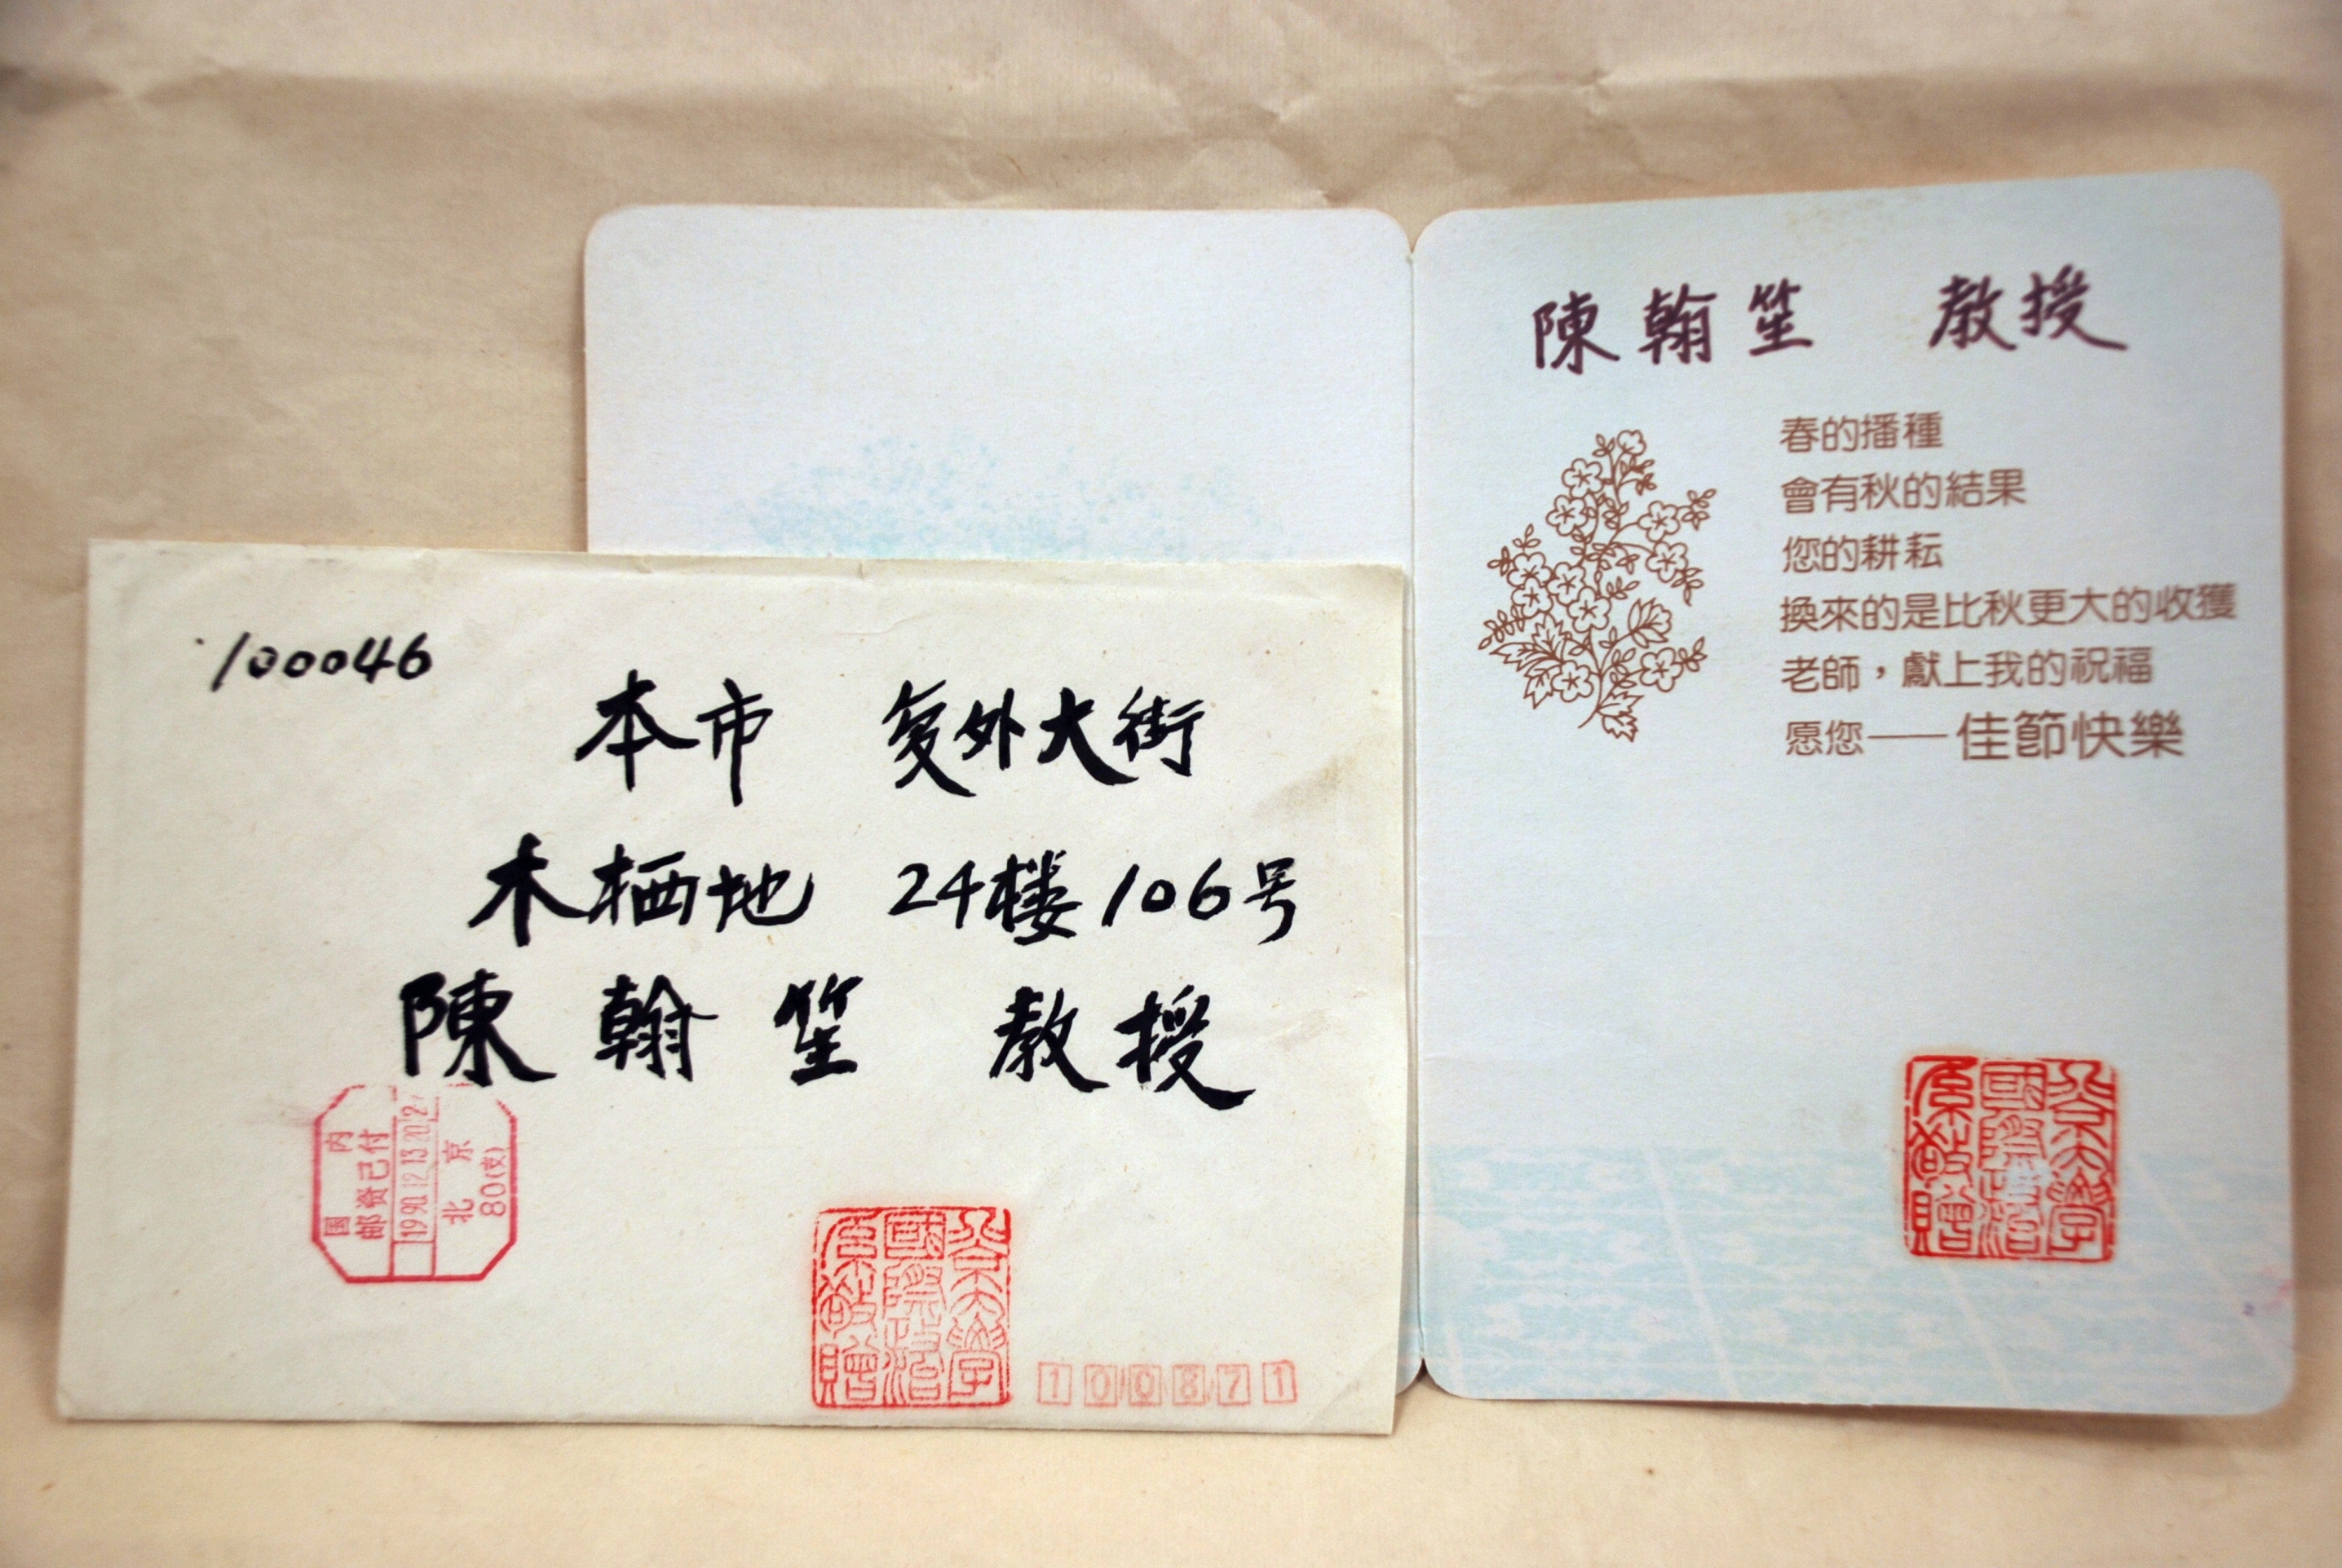 100046
本市 复外大街
木栖地 24楼106号
陳翰笙 教授
国内
邮资已付
1990.12.13.20
北京
80(支)
北京大學
國際政治
系敬贈
100871
陳翰笙 教授
春的播種
會有秋的結果
您的耕耘
換來的是比秋更大的收獲
老師，獻上我的祝福
愿您——佳節快樂
北京大學
國際政治
系敬贈